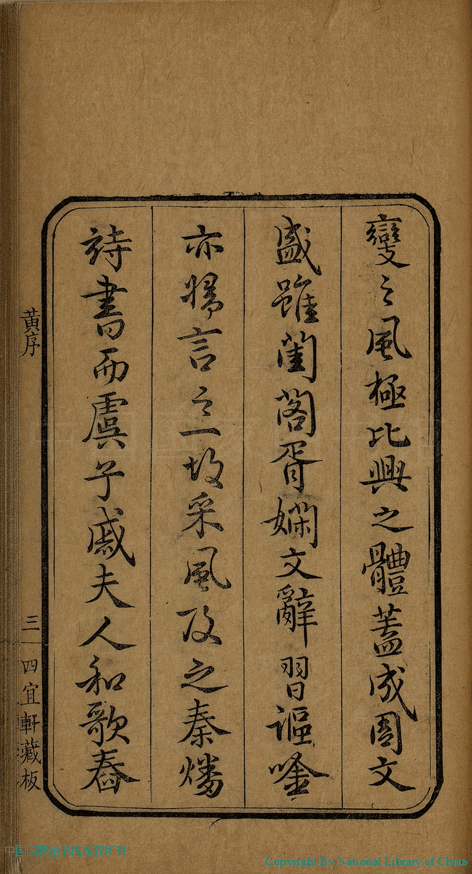 變之風極比興之體蓋成周文
盛雖閨閣胥嫻文辭習謳唫
亦婦言之一故采風及之秦燔
詩書而虞子戚夫人和歌舂
黃序
三
四宜軒藏板
Copyright By National Library of China